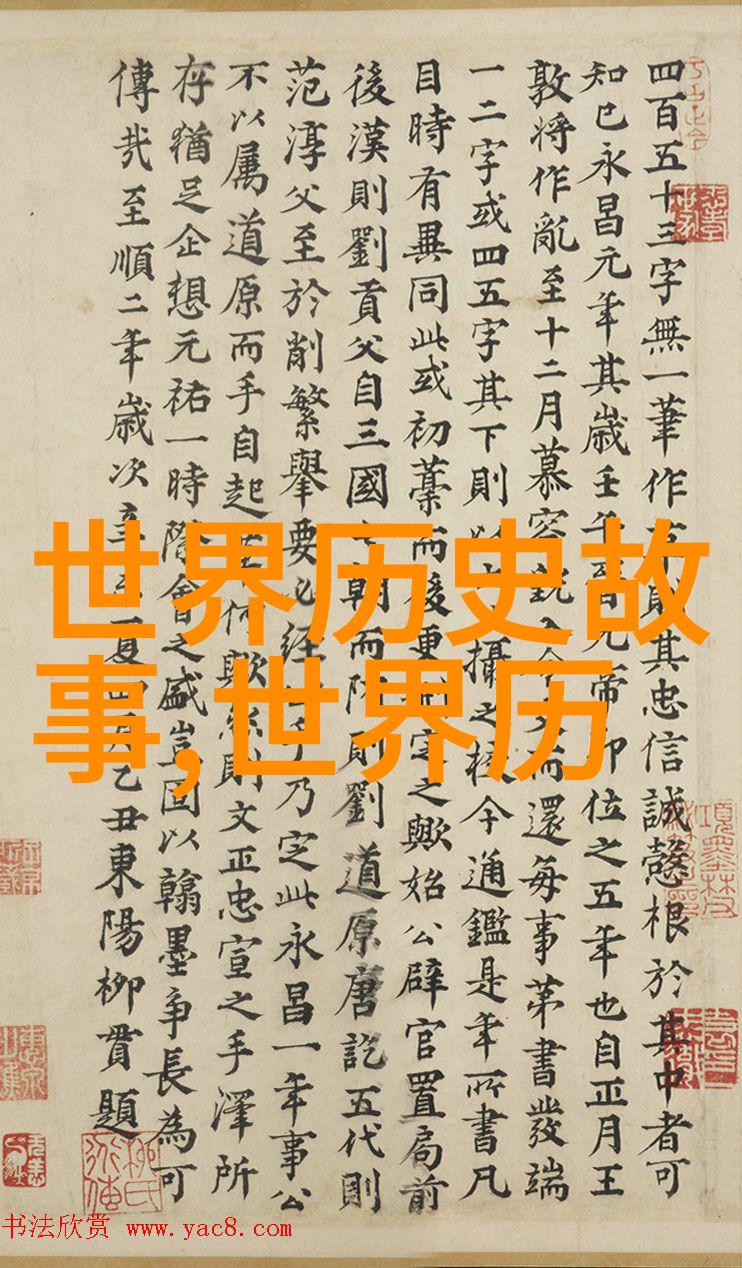 四百五十三字無一筆作草則其忠信誠慤根於其中者可
知已永昌元年其歲壬午晉元帝即位之五年也自正月王
敦將作亂至十二月慕容皝入令支而還每事第書發端
一二字或四五字其下則以攝之校今通鑑是年所書凡
目時有異同此或初藁而後更刪定之歟始公辟官置局前
後漢則劉貢父自三國七朝而隋則劉道原唐訖五代則
范淳父至於削繁舉要必經公手乃定此永昌一年事公
不以屬道原而手自起草何歟然則文正忠宣之手澤所
存猶足企想元祐一時際會之盛豈固以翰墨爭長為可
傳哉至順二年歲次辛未夏四月乙丑東陽柳貫題
世界历史故
事,世界历
书法欣赏 www.yac8.com